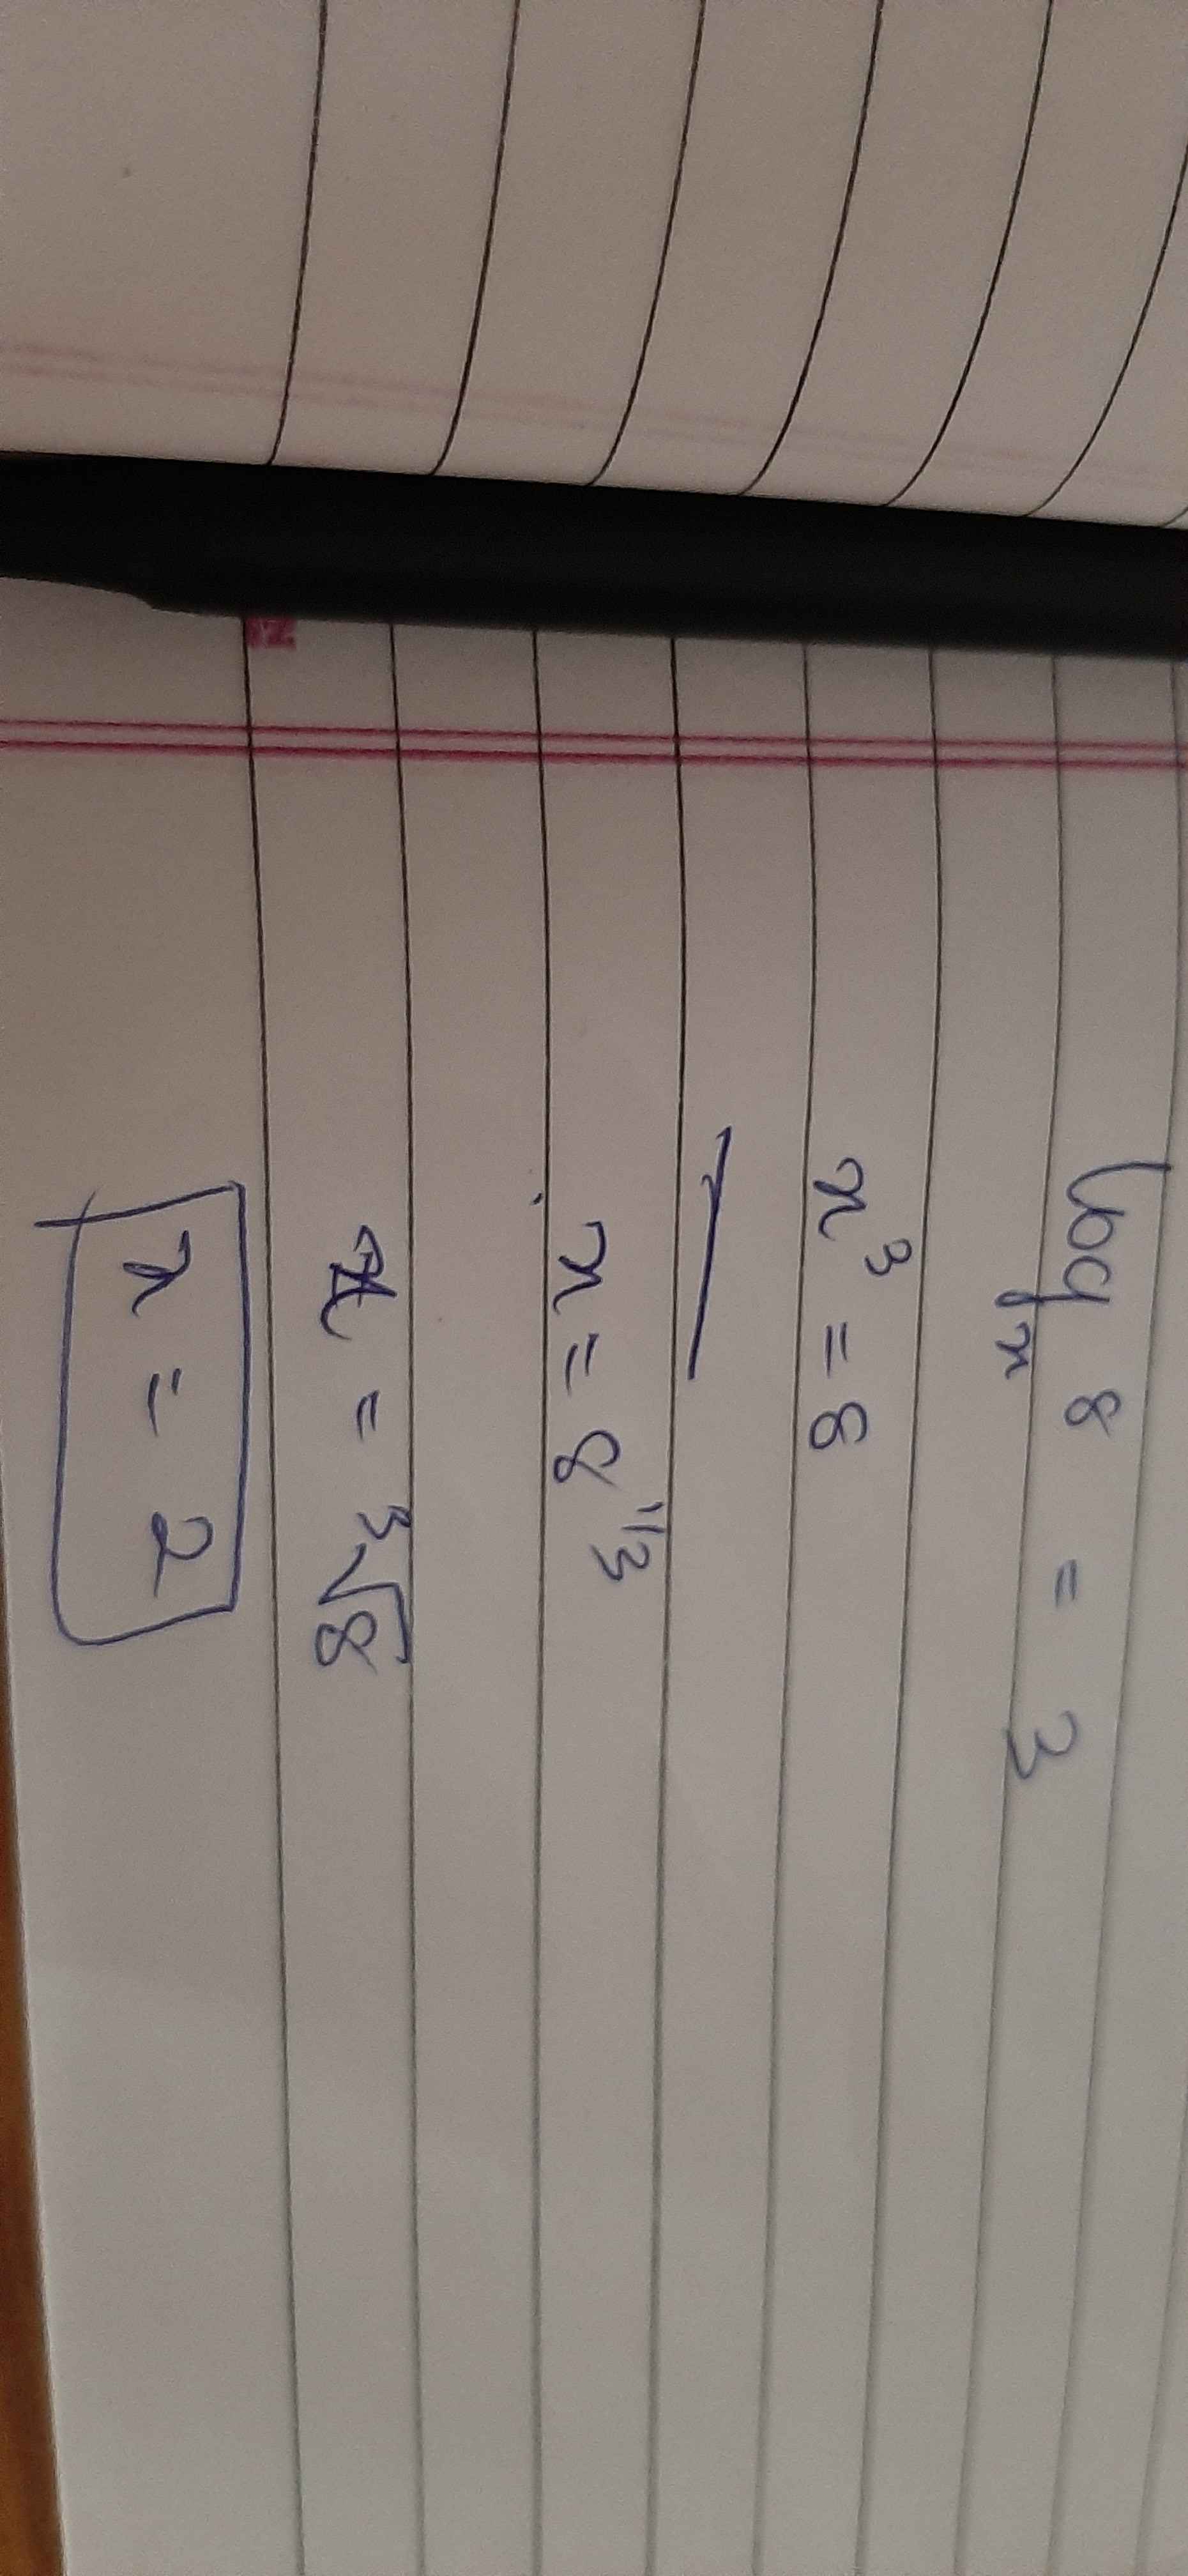 log_x 8 = 3
x³ = 8
x = 8^1/3
x = ³√8
x = 2